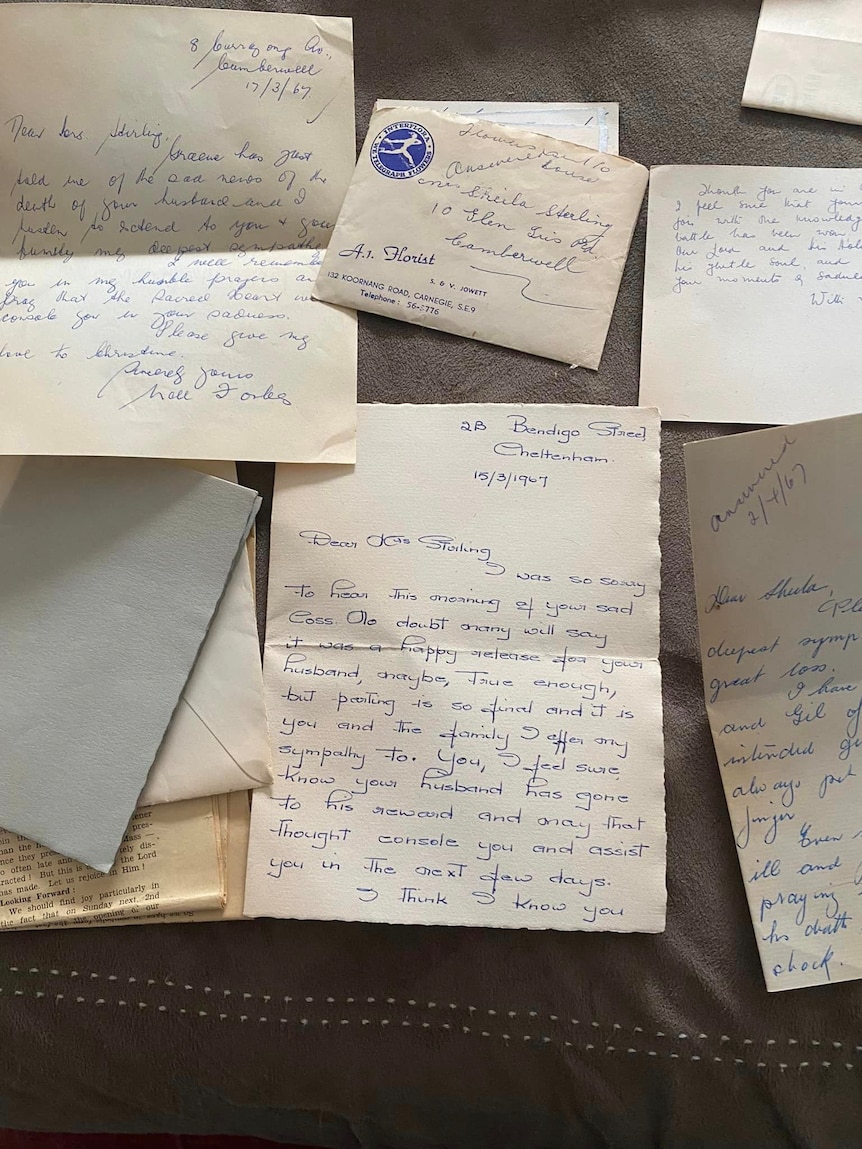 8 Currajong Av.,
Camberwell
17/3/67.
Dear Mrs. Stirling,
Graeme has just
told me of the sad news of the
death of your husband and I
hasten to extend to you & your
family my deepest sympathy
I will remember
you in my humble prayers an
pray that the Sacred Heart wi
console you in your sadness.
Please give my
love to Christine.
Sincerely yours
Forbes
INTERFLORA
WE TELEGRAPH FLOWERS
Flowers sent to
house
Answered
Mrs Sheila Sterling
10 Glen Iris Rd.
Camberwell
A.1. Florist
S. & V. JOWETT
132 KOORNANG ROAD, CARNEGIE, S.E.9
Telephone: 56-5776
Though you are in
I feel sure that your
you with the knowledg
battle has been won
Our Lord and his
his gentle soul, and
your moments of sadne
With
2B Bendigo Street
Cheltenham.
15/3/1967
Dear Mrs Stirling
I was so sorry
to hear this morning of your sad
loss. No doubt many will say
it was a happy release for your
husband, maybe, true enough,
but parting is so final and it is
you and the family I offer my
sympathy to. You, I feel sure,
know your husband has gone
to his reward and may that
thought console you and assist
you in the next few days.
I think I know you
answered
2/4/67
Dear Sheila,
(Pl
deepest symp
great loss.
I have
and Gil of
intended
always put
finger
Even
ill and
praying
his death
shock.
tener
pres-
than the
lass —
nce they pre
ely dis-
o often late an
the Lord
racted! But this is
has made. Let us rejoice in Him!
Looking Forward:
We should find joy particularly in
the fact that on Sunday next, 2nd
opening of our